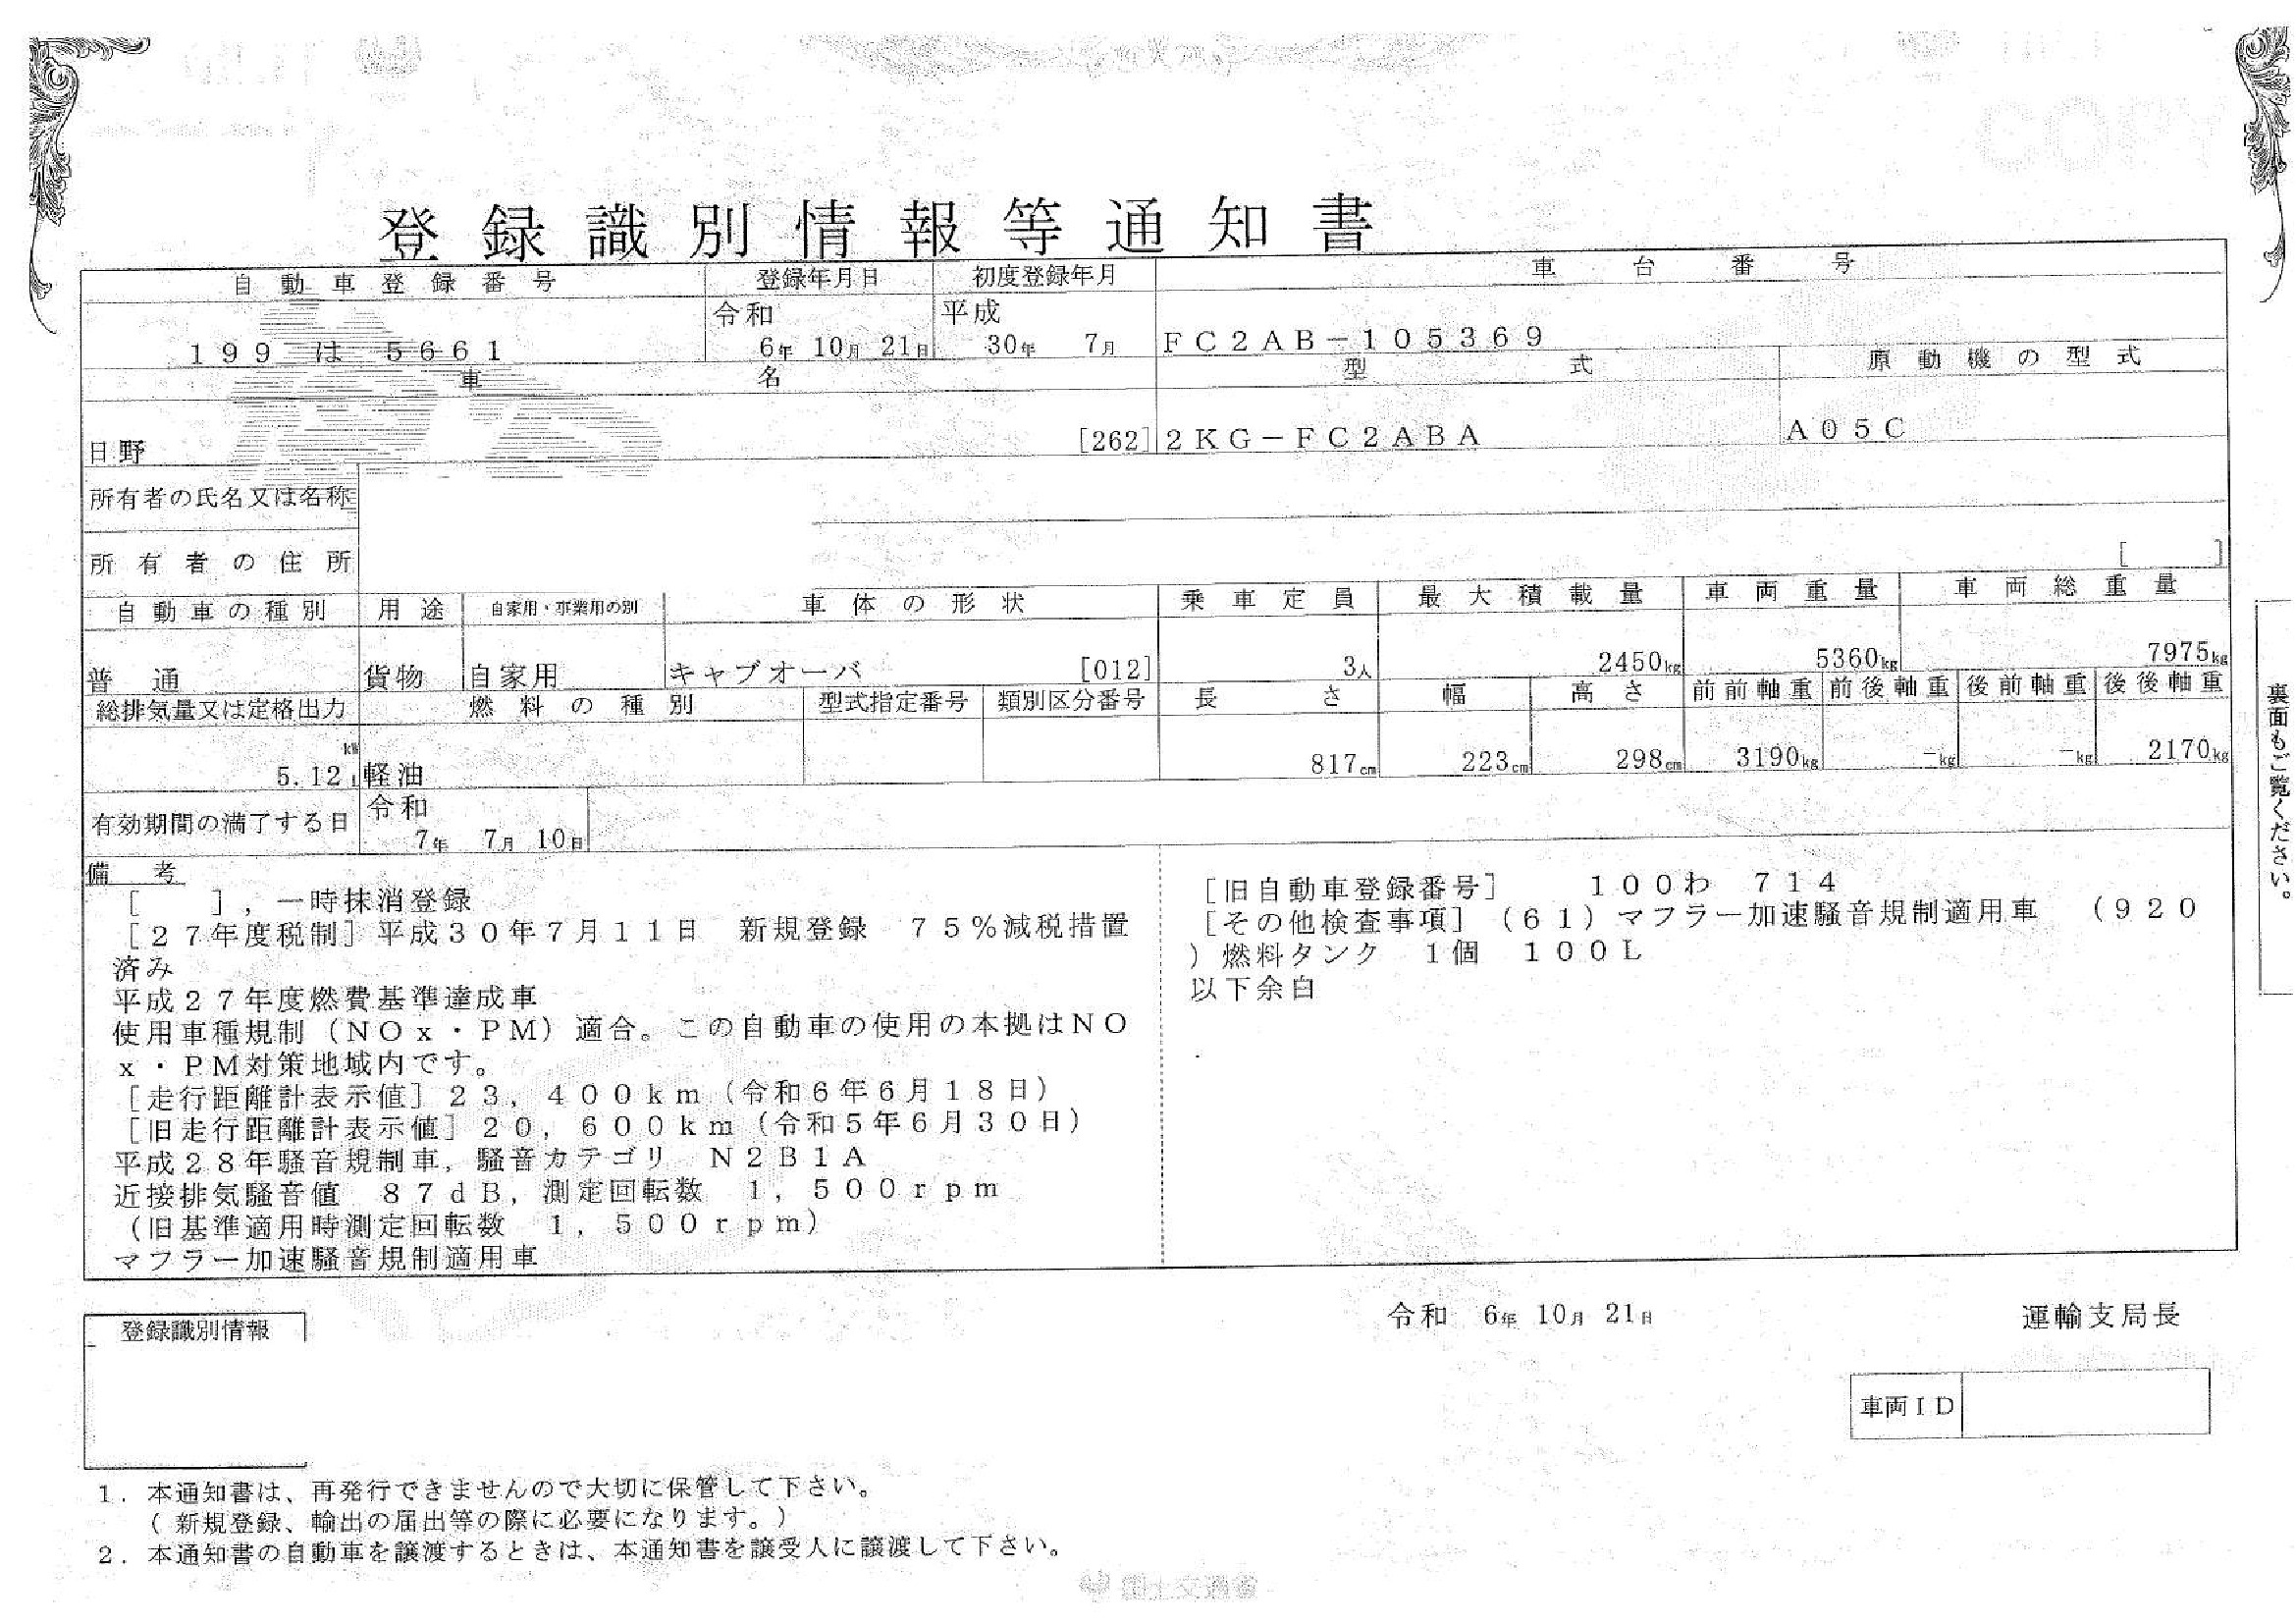 登録識別情報等通知書
自動車登録番号 登録年月日 初度登録年月 車台番号
199 は 5661 令和 6年 10月 21日 平成 30年 7月 FC2AB-105369
車名 型式 原動機の型式
日野 [262] 2KG-FC2ABA A05C
所有者の氏名又は名称
所有者の住所 [ ]
自動車の種別 用途 自家用・事業用の別 車体の形状 乗車定員 最大積載量 車両重量 車両総重量
普通 貨物 自家用 キャブオーバ [012] 3人 2450kg 5360kg 7975kg
総排気量又は定格出力 燃料の種別 型式指定番号 類別区分番号 長さ 幅 高さ 前前軸重 前後軸重 後前軸重 後後軸重
kW
5.12 L 軽油 817cm 223cm 298cm 3190kg -kg -kg 2170kg
有効期間の満了する日 令和 7年 7月 10日
備考
[ ],一時抹消登録
[27年度税制]平成30年7月11日 新規登録 75%減税措置
済み
平成27年度燃費基準達成車
使用車種規制(NOx・PM)適合。この自動車の使用の本拠はNO
x・PM対策地域内です。
[走行距離計表示値]23,400km(令和6年6月18日)
[旧走行距離計表示値]20,600km(令和5年6月30日)
平成28年騒音規制車,騒音カテゴリ N2B1A
近接排気騒音値 87dB,測定回転数 1,500rpm
(旧基準適用時測定回転数 1,500rpm)
マフラー加速騒音規制適用車
[旧自動車登録番号] 100わ 714
[その他検査事項](61)マフラー加速騒音規制適用車 (920
)燃料タンク 1個 100L
以下余白
裏面もご覧ください。
登録識別情報
令和 6年 10月 21日 運輸支局長
車両ID
1.本通知書は、再発行できませんので大切に保管して下さい。
(新規登録、輸出の届出等の際に必要になります。)
2.本通知書の自動車を譲渡するときは、本通知書を譲受人に譲渡して下さい。